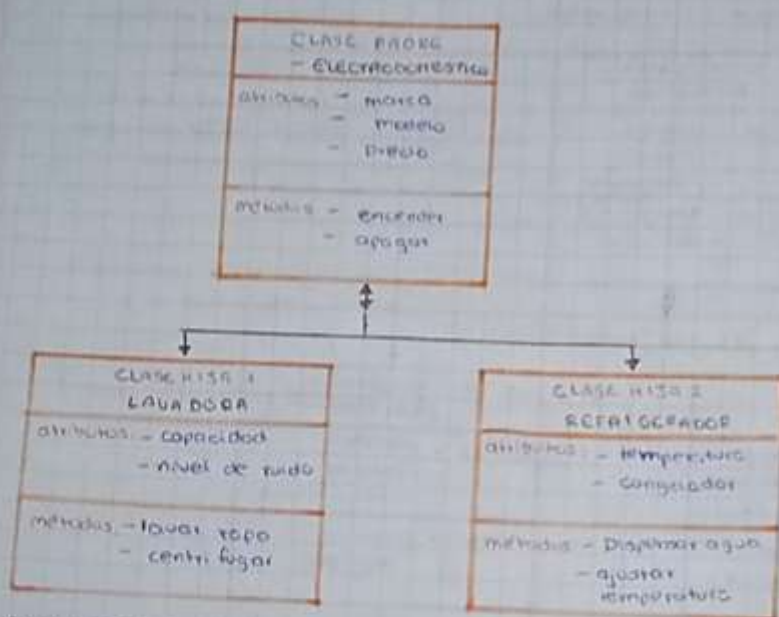 CLASE PADRE
- ELECTRODOMESTICO
atributos - marca
- modelo
- precio
métodos - encender
- apagar
CLASE HIJA 1
LAVADORA
atributos - capacidad
- nivel de ruido
métodos - lavar ropa
- centrifugar
CLASE HIJA 2
REFRIGERADOR
atributos - temperatura
- congelador
métodos - Dispensar agua
- ajustar
temperatura